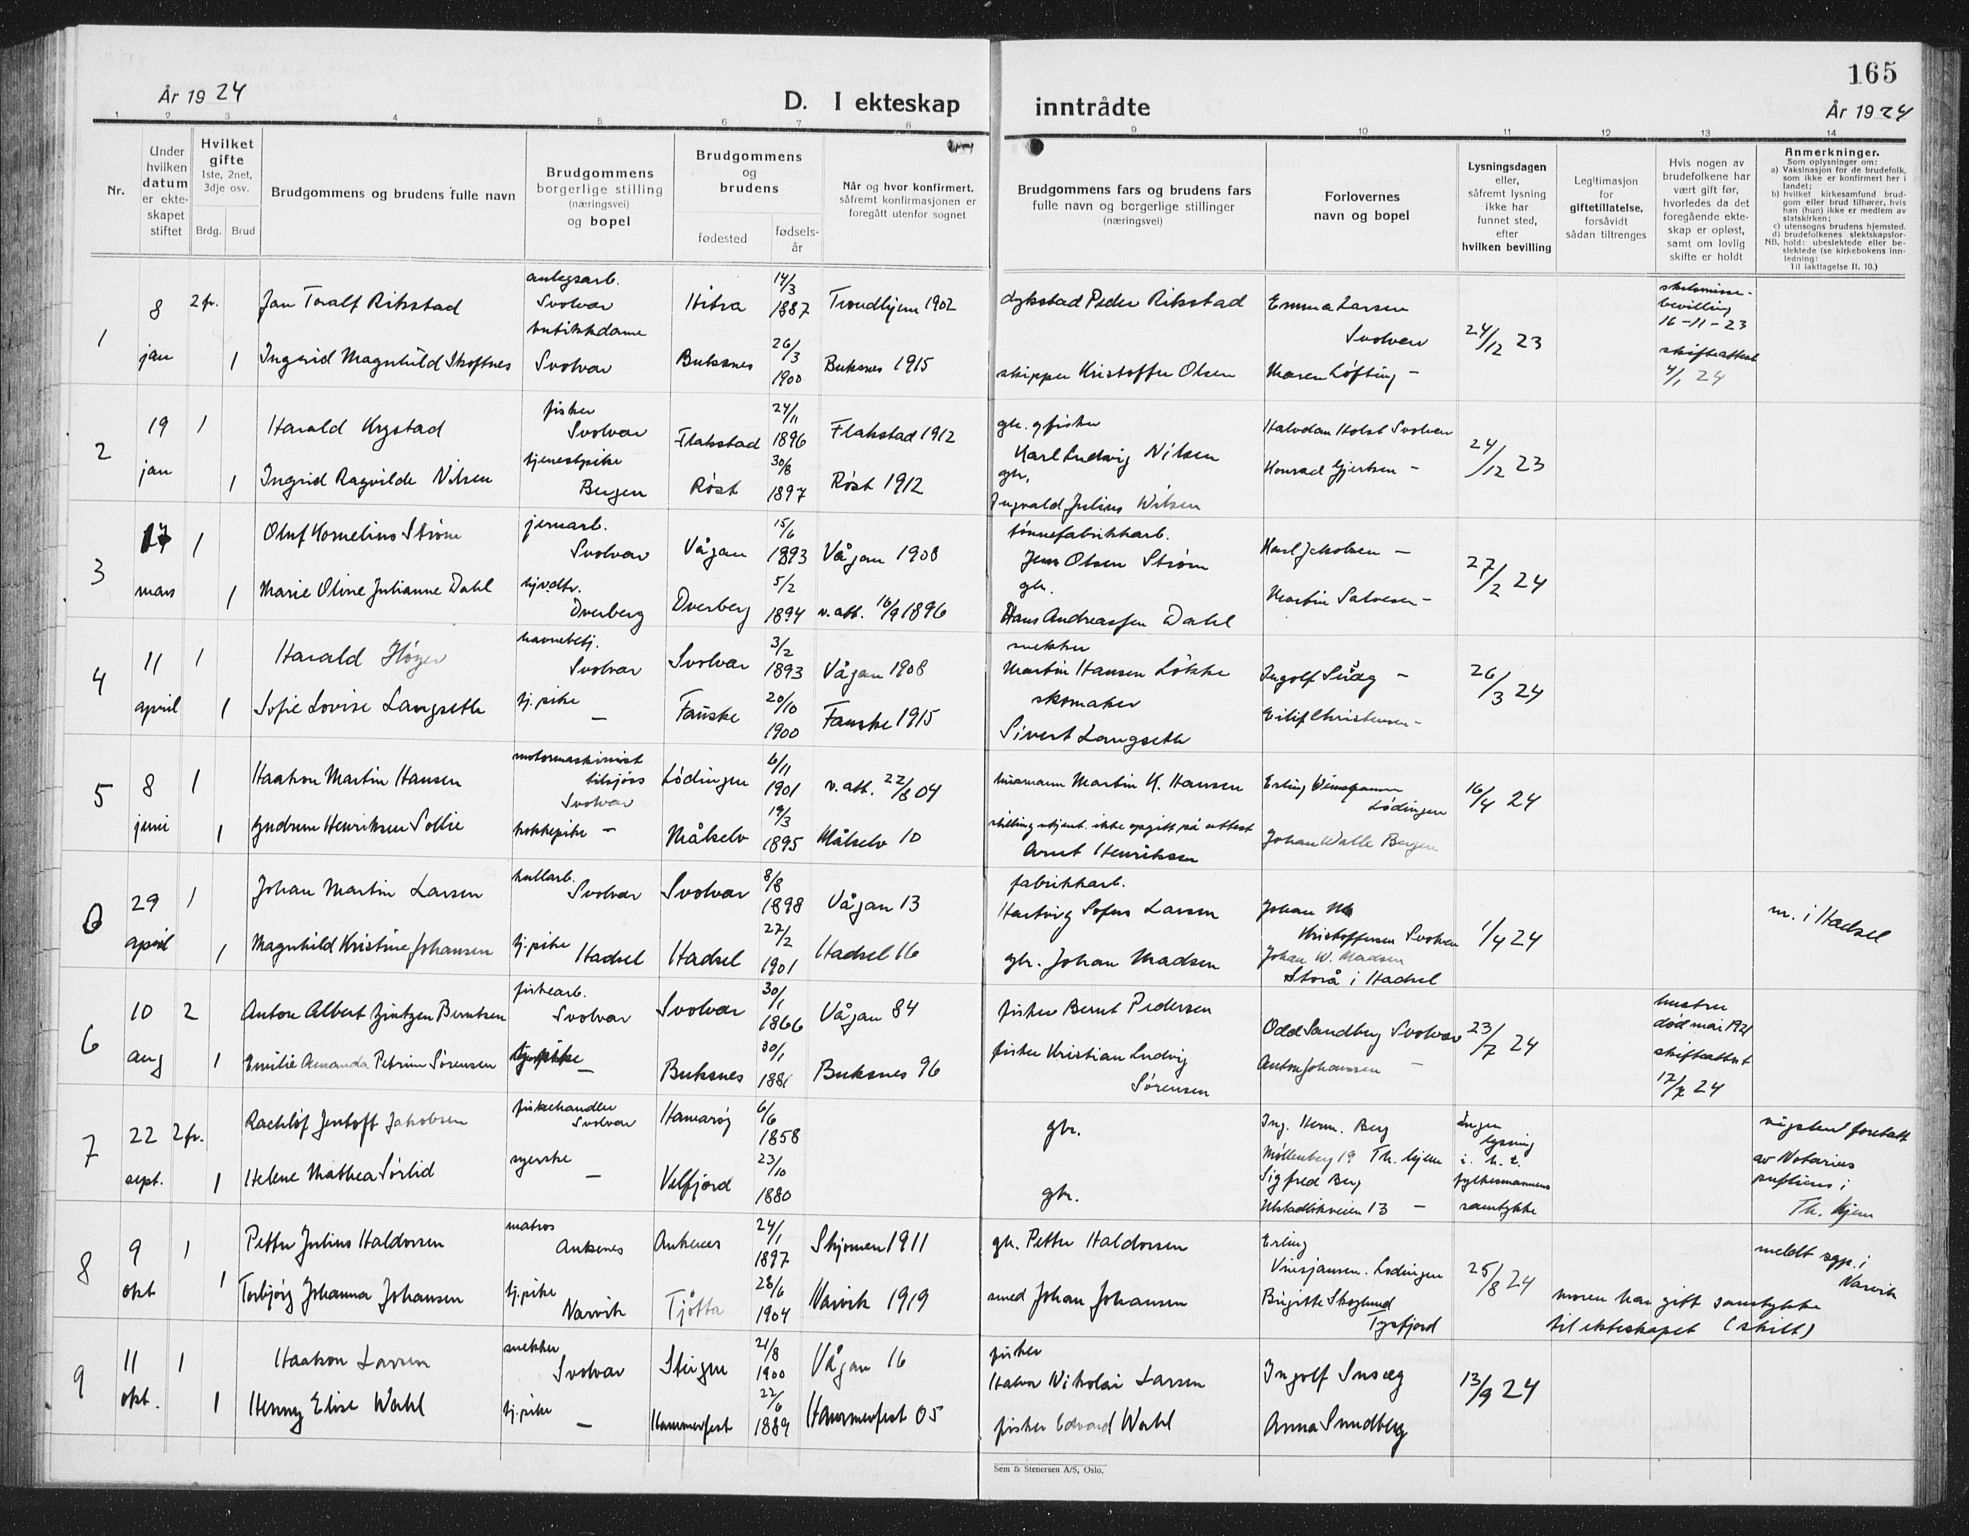 165
År 1924
D. I ekteskap inntrådte
År 1924
1 2 3 4 5 6 7 8 9 10 11 12 13 14
Nr.
Under hvilken datum er ekteskapet stiftet
Hvilket gifte 1ste, 2net, 3dje osv.
Brdg. Brud
Brudgommens og brudens fulle navn
Brudgommens borgerlige stilling (næringsvei) og bopel
Brudgommens og brudens
fødested
fødselsår
Når og hvor konfirmert, såfremt konfirmasjonen er foregått utenfor sognet
Brudgommens fars og brudens fars fulle navn og borgerlige stillinger (næringsvei)
Forlovernes navn og bopel
Lysningsdagen eller, såfremt lysning ikke har funnet sted, efter hvilken bevilling
Legitimasjon for giftetillatelse, forsåvidt sådan tiltrenges
Hvis nogen av brudefolkene har vært gift før, hvorledes da det foregående ekteskap er opløst, samt om lovlig skifte er holdt
Anmerkninger.
Som oplysninger om:
a) Vaksinasjon for de brudefolk, som ikke er konfirmert her i landet;
b) hvilket kirkesamfund brudgom eller brud tilhører, hvis han (hun) ikke er medlem av statskirken;
c) utensogns brudens hjemsted.
d) brudefolkenes slektskapsforhold: ubeslektede eller beslektede (se kirkebokens innledning:
NB.
Til iakttagelse II. 10.)
1 8 jan 2 fr. Jan Toralf Rikstad anlegsarb. Svolvær Hitra 14/3 1887 Trondhjem 1902 Peder Rikstad Emma Larsen Svolvær 24/12 23 skilsmissebevilling 16-11-23
1 Ingrid Magnhild Skoftnes butikkdame Svolvær Buksnes 26/3 1900 Buksnes 1915 skipper Kristoffer Olsen Maren Løfting - skifteattest 4/1 24
2 19 jan 1 Harald Krystad fisker Svolvær Flakstad 24/11 1896 Flakstad 1912 gbr. og fisker Karl Ludvig Nilsen Halvdan Holst Svolvær 24/12 23
1 Ingrid Ragvilde Nilsen tjenestpike Bergen Røst 30/8 1897 Røst 1912 gbr. Ingvald Julius Nilsen Konrad Gjertsen -
3 17 mars 1 Oluf Kornelius Strøm jernarb. Svolvær Vågan 15/6 1893 Vågan 1908 tønnefabrikkarb. Jens Olsen Strøm Karl Jakobsen - 27/2 24
1 Marie Oline Julianne Dahl Dverberg Dverberg 5/2 1894 v. att. 16/9 1896 gbr. Hans Andreassen Dahl Martin Salvesen -
4 11 april 1 Harald Høyer havnebetj. Svolvær Svolvær 3/2 1893 Vågan 1908 snekker Martin Hansen Løkke 26/3 24
1 Sofie Lovise Langseth tj. pike - Fauske 20/10 1900 Fauske 1915 skomaker Sivert Langseth Eilif Christensen -
5 8 juni 1 Haakon Martin Hansen motormaskinist tilsjøss Svolvær Lødingen 6/11 1901 v. att. 22/8 04 Martin K. Hansen Erling Lødingen 16/4 24
1 Gudrun Henriksen Sollie kokkepike - Målselv 19/3 1895 Målselv 10 stilling ikke opgitt på attest Arnt Henriksen Johan Walle Bergen
6 29 april 1 Johan Martin Larsen kullarb. Svolvær Svolvær 8/8 1898 Vågan 13 fabrikkarb. Hartvig Sofus Larsen Johan Kristoffersen Svolvær 1/4 24 m. i Hadsel
1 Magnhild Kristine Johansen tj. pike Hadsel Hadsel 27/2 1901 Hadsel 16 gbr. Johan Madsen Johan W. Madsen Storå i Hadsel
6 10 aug 2 Anton Albert Jentzen Berntsen fiskearb. Svolvær Svolvær 30/1 1866 Vågan 84 fisker Bernt Pedersen Odd Sandberg Svolvær 23/7 24 hustru død mai 1921
1 Emilie Amanda Petrine Sørensen - Buksnes 30/1 1881 Buksnes 96 fisker Kristian Ludvig Sørensen Anton Johanssen - skifteattest 17/7 24
7 22 sept. 2 fr. Jentoft Jakobsen fiskehandler Svolvær Hamarøy 6/6 1858 gbr. Ing. Herm. Berg Møllenberg 19 Th. hjem Ingen lysning i. h. t. fylkesmannens samtykke vigslen foretatt av Notarius publicus i Th. hjem
1 Helene Mathea Sørlid syerske - Velfjord 23/10 1880 gbr. Sigfred Berg 13 -
8 9 okt 1 Petter Julius Haldorsen matros Ankenes Ankenes 24/1 1897 Skjomen 1911 gbr. Petter Haldorsen Erling Lødingen 25/8 24 meldt sgp. i Narvik
1 Torbjørg Johanna Johansen tj. pike Narvik Tjøtta 28/6 1904 Narvik 1919 smed Johan Johansen Birgitte Skoglund Tysfjord moren har gitt samtykke til ekteskapet (skilt)
9 11 okt. 1 Haakon Larsen snekker Svolvær Steigen 21/8 1900 Vågan 16 fisker Halvor Nikolai Larsen Ingolf 13/9 24
1 Henny Elise Wahl tj. pike - Hammerfest 22/6 1889 Hammerfest 05 fisker Edvard Wahl Anna Sundberg
Sem & Stenersen A/S, Oslo.